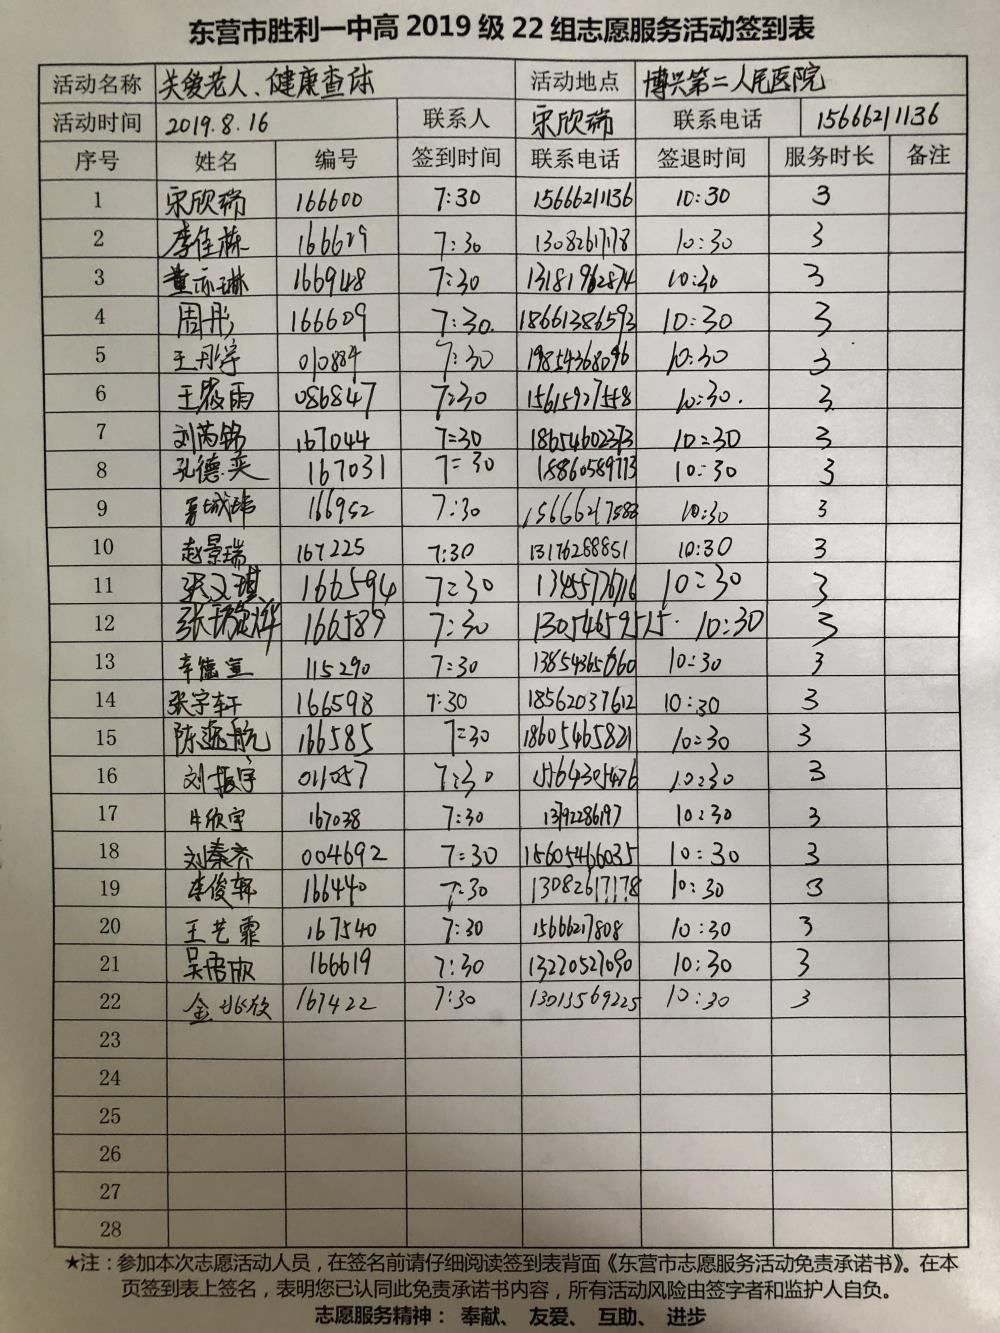 东营市胜利一中高 2019 级 22 组志愿服务活动签到表
活动名称 关爱老人、健康查体 活动地点 博兴第二人民医院
活动时间 2019.8.16 联系人 宋欣瑞 联系电话 15666211136
序号 姓名 编号 签到时间 联系电话 签退时间 服务时长 备注
1 宋欣瑞 166600 7:30 15666211136 10:30 3
2 李佳栋 166629 7:30 10:30 3
3 董亦琳 7:30 13181962874 10:30 3
4 周彤 166609 7:30. 18661386593 10:30 3
5 王丹宇 010884 7:30 19854368096 10:30 3
6 王筱雨 086847 7:30 15615927558 10:30. 3
7 刘芮铭 167044 7:30 18654602373 10:30 3
8 孔德奕 167031 7:30 15860589773 10:30 3
9 166952 7:30 10:30 3
10 赵景瑞 167225 7:30 13176288851 10:30 3
11 张又琪 166594 7:30 13455776716 10:30 3
12 166589 7:30 13054659515. 10:30 3
13 辛德宣 115290 7:30 10:30 3
14 张宇轩 166598 7:30 18562037612 10:30 3
15 陈逸航 166585 7:30 18605465821 10:30 3
16 刘振宇 011057 7:30 15564305476 10:30 3
17 牛欣宇 167038 7:30 10:30 3
18 刘秦齐 004692 7:30 15605466035 10:30 3
19 李俊辉 166440 7:30 13082617178 10:30 3
20 王艺霏 167540 7:30 15666217808 10:30 3
21 吴语欣 166619 7:30 13220527090 10:30 3
22 金 167422 7:30 13013569225 10:30 3
23
24
25
26
27
28
★注：参加本次志愿活动人员，在签名前请仔细阅读签到表背面《东营市志愿服务活动免责承诺书》。在本
页签到表上签名，表明您已认同此免责承诺书内容，所有活动风险由签字者和监护人自负。
志愿服务精神： 奉献、 友爱、 互助、 进步